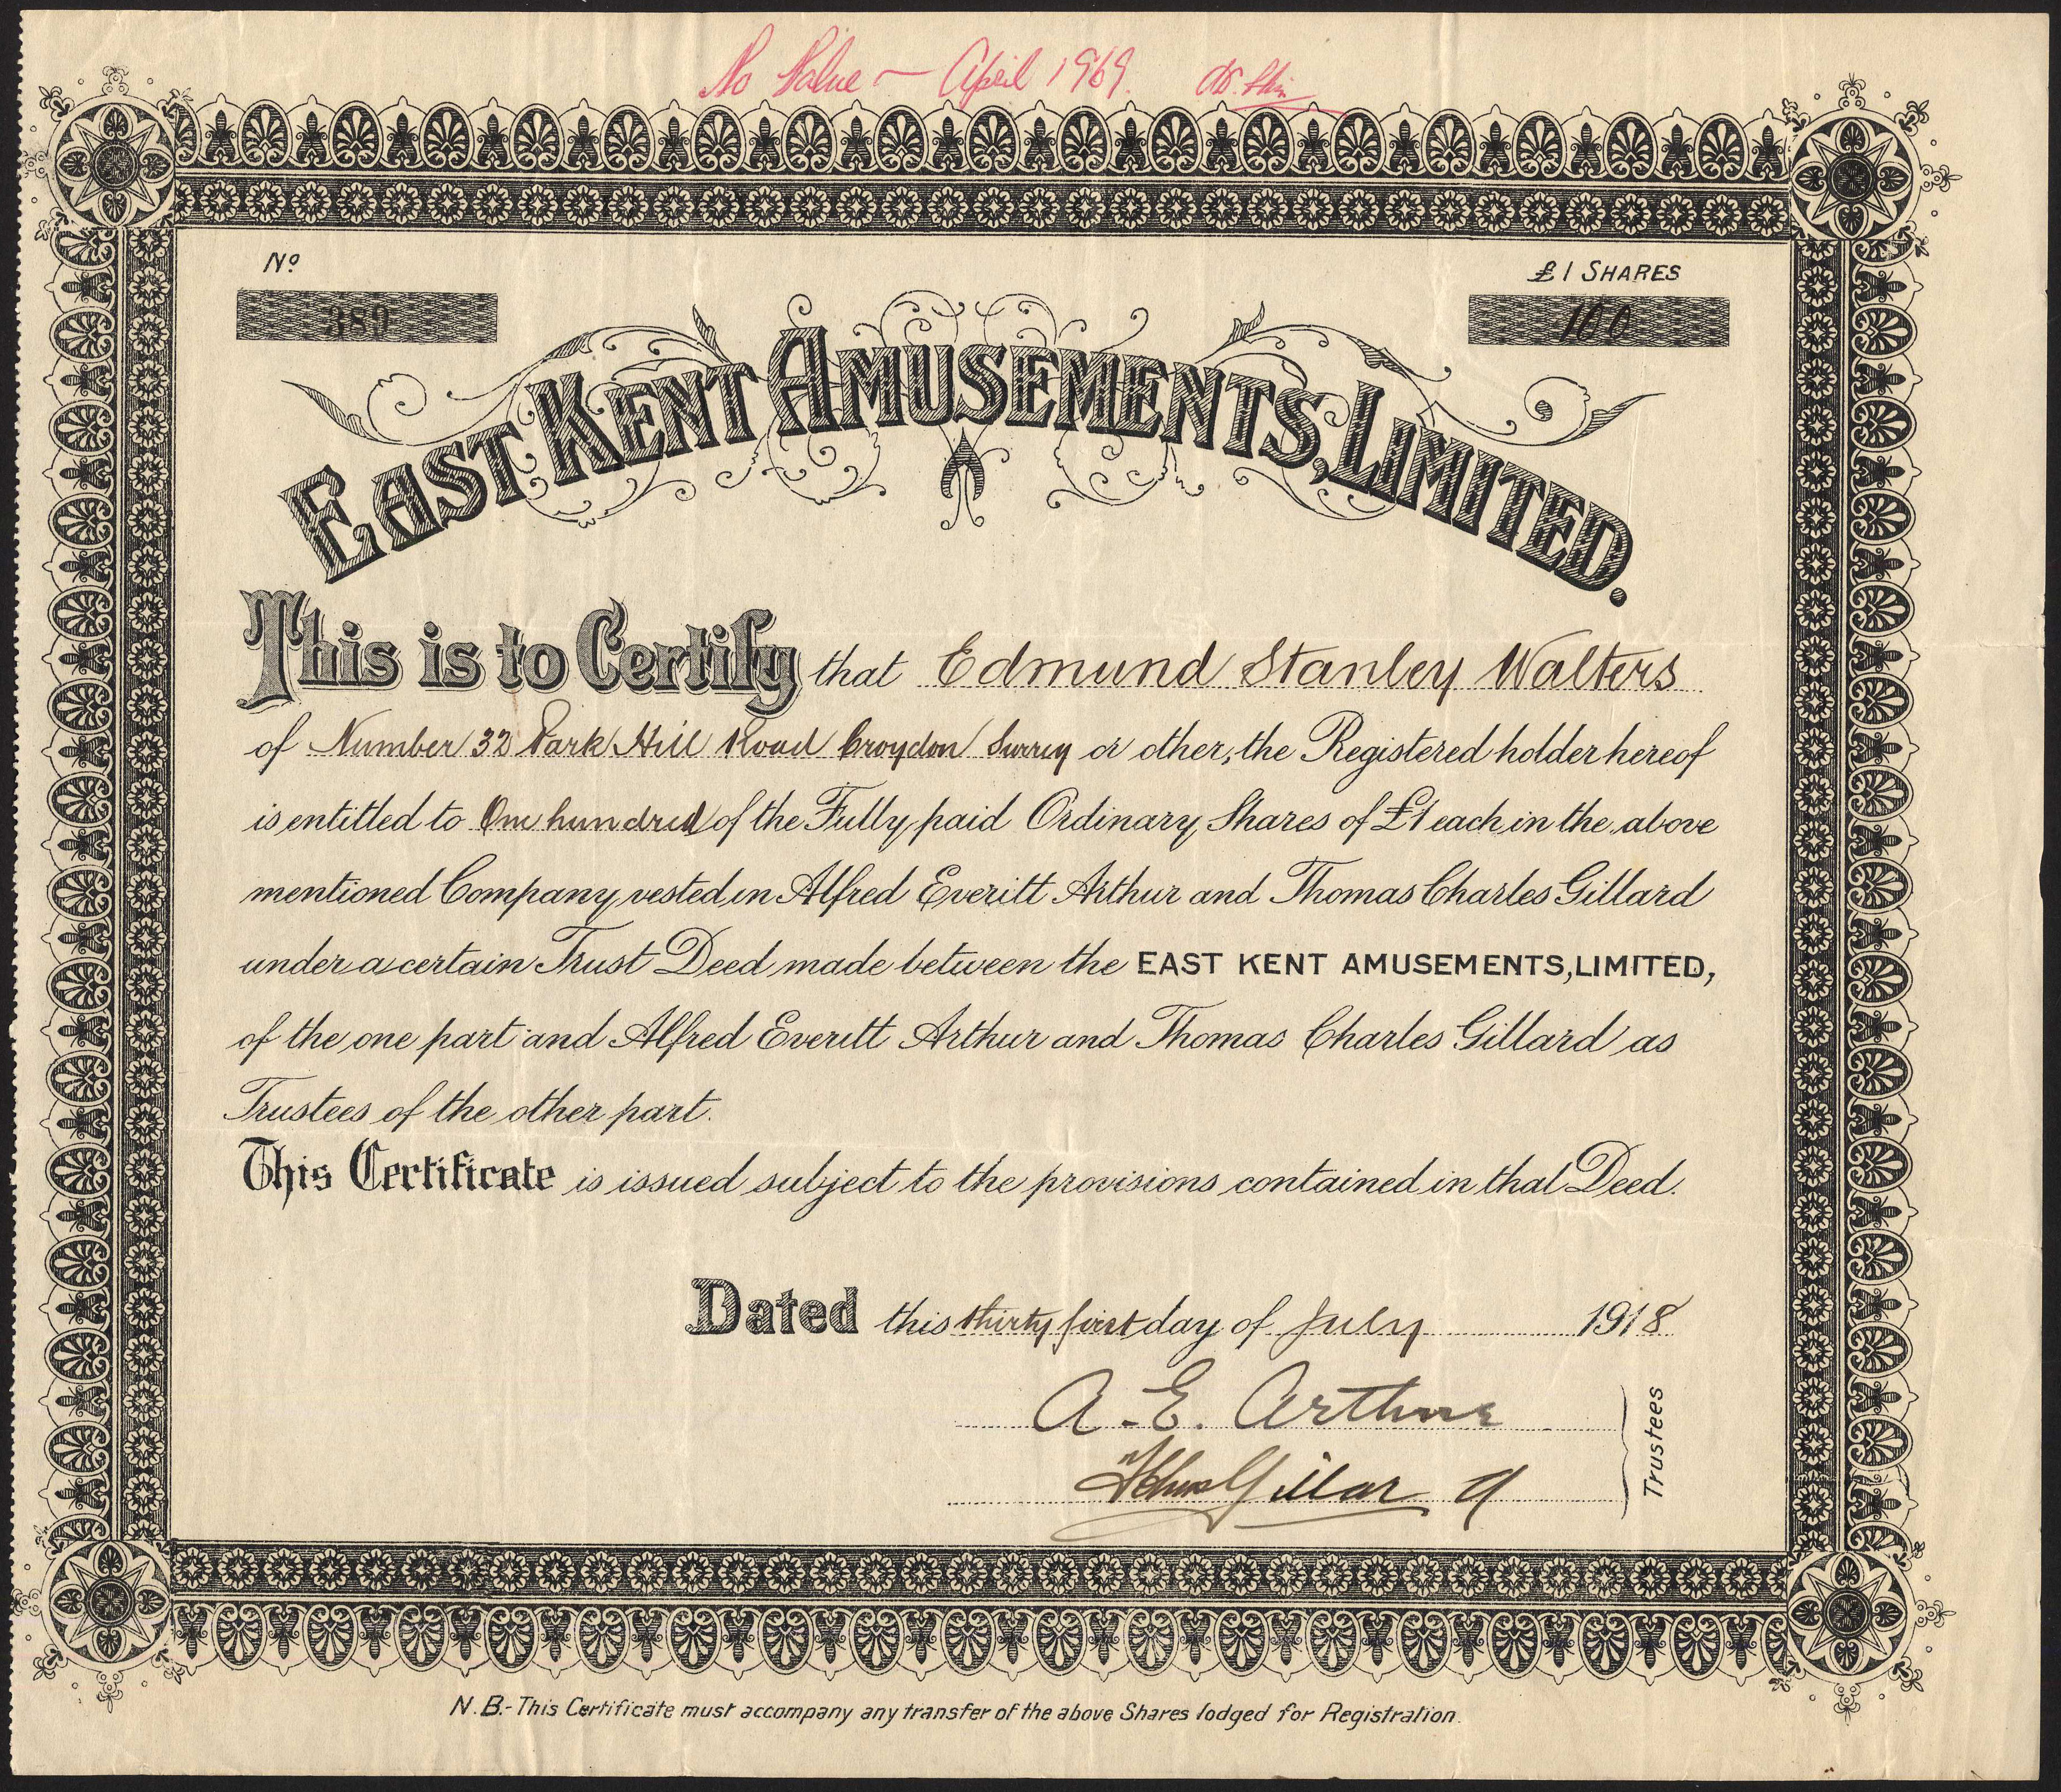 No Value — April 1969.
Nº
£1 SHARES
389
100
EAST KENT AMUSEMENTS, LIMITED.
This is to Certify that Edmund Stanley Walters
of Number 32 Park Hill Road Croydon Surrey or other, the Registered holder hereof
is entitled to One hundred of the Fully paid Ordinary Shares of £1 each in the above
mentioned Company, vested in Alfred Everitt Arthur and Thomas Charles Gillard
under a certain Trust Deed made between the EAST KENT AMUSEMENTS, LIMITED,
of the one part and Alfred Everitt Arthur and Thomas Charles Gillard as
Trustees of the other part.
This Certificate is issued subject to the provisions contained in that Deed.
Dated this thirty first day of July 1918
A. E. Arthur
Thos Gillard
Trustees
N.B.- This Certificate must accompany any transfer of the above Shares lodged for Registration.